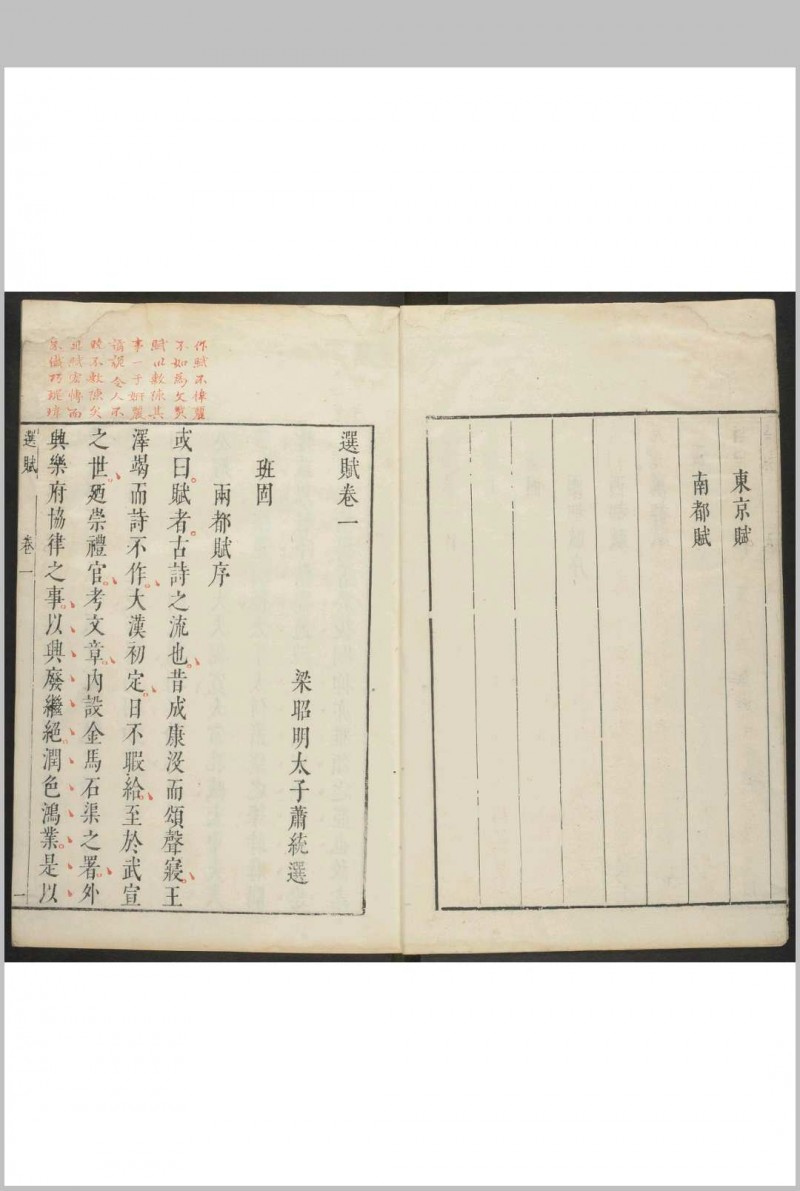 東京賦
南都賦
賦不偉麗
不如為文
賦以敷陳其
事一于妍麗
今人不
不敷陳矣
選賦卷一
梁昭明太子蕭統選
班固
兩都賦序
或曰賦者古詩之流也昔成康沒而頌聲寢王
澤竭而詩不作大漢初定日不暇給至於武宣
之世廼崇禮官考文章內設金馬石渠之署外
興樂府協律之事以興廢繼絕潤色鴻業是以
選賦 卷一 一